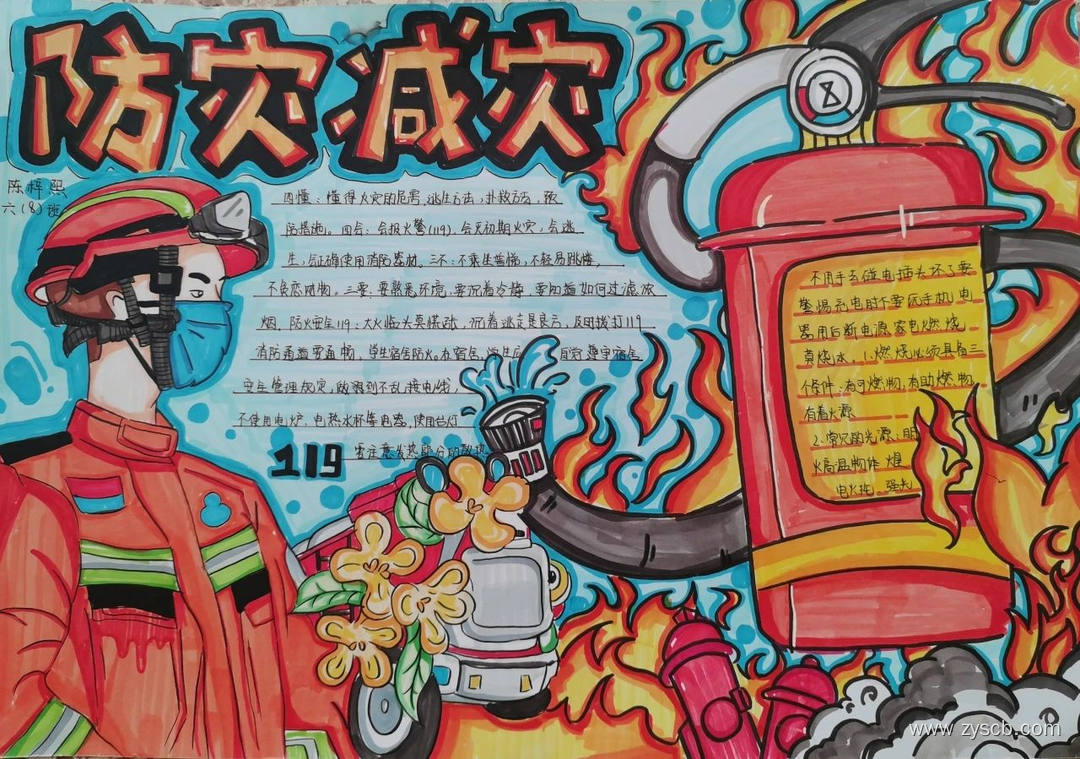 防灾减灾
陈梓熙
六(8)班
四懂：懂得火灾的危害,逃生方法,扑救方法,预
防措施。四会：会报火警(119),会灭初期火灾,会逃
生,会正确使用消防器材。三不：不乘坐电梯,不轻易跳楼,
不贪恋财物。三要：要熟悉环境,要沉着冷静,要知道如何过滤浓
烟,防火安全119：大火临头莫慌张,沉着逃生是良方,及时拨打119
消防通道要通畅,学生宿舍防火。在宿舍,学生应自觉遵守宿舍
安全管理规定,做到不乱接电线,
不使用电炉,电热水杯等电器,使用台灯
要注意发热部分的散热
119
不用手去碰电插头坏了要
警惕充电时不要玩手机电
器用后断电源家电燃烧
莫烧水。1.燃烧必须具备三
个条件：有可燃物,有助燃物,
有着火源
2.常见的光源:明
火高温物体
电火花 强光
www.zyscb.com